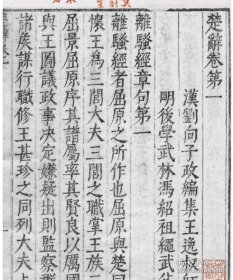 楚辭卷第一
漢劉向子政編集王逸叔
明後學武林馮紹祖繩武父
離騷經章句第一
離騷經者屈原之所作也屈原與楚同
懷王為三閭大夫三閭之職掌王族三
屈景屈原序其譜屬率其賢良以厲國
與王圖議政事決定嫌疑出則監察
諸矦謀行職修王甚珍之同列大夫上